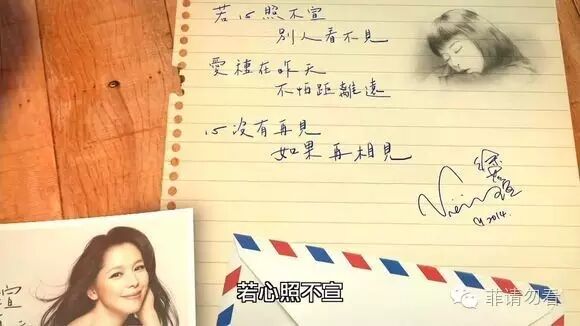 若心照不宣
別人看不見
愛種在昨天
不怕距離遠
心沒有再見
如果再相見
徐若瑄
Vivian
2014.
若心照不宣
菲请勿看